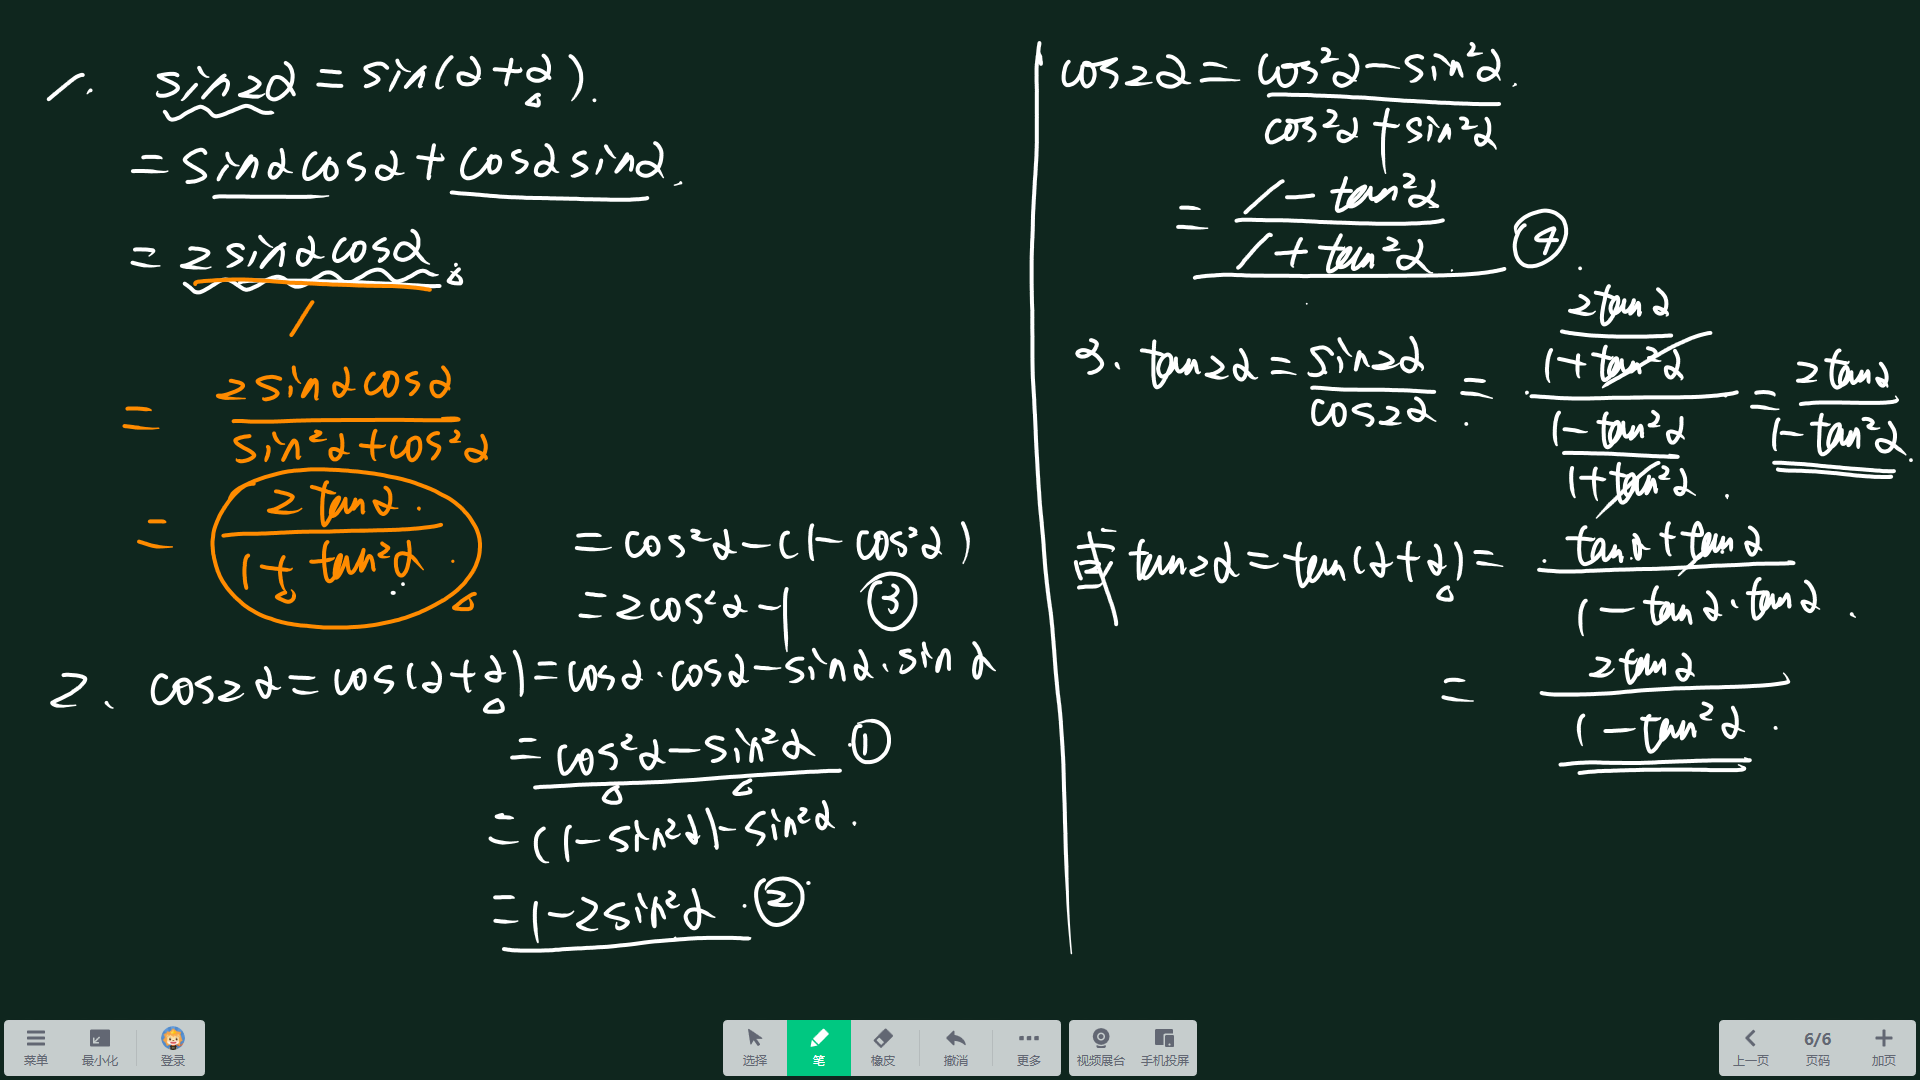 1. sin2α = sin(α+α).
= sinαcosα + cosαsinα.
= 2sinαcosα.
1
= 2sinαcosα / sin²α+cos²α
= 2tanα / 1+tan²α
2、cos2α = cos(α+α) = cosα·cosα - sinα·sinα
= cos²α - sin²α ①
= (1-sin²α) - sin²α.
= 1-2sin²α. ②
= cos²α - (1-cos²α)
= 2cos²α - 1 ③
cos2α = cos²α - sin²α / cos²α + sin²α
= 1 - tan²α / 1 + tan²α ④
3. tan2α = sin2α / cos2α = (2tanα / 1+tan²α) / (1-tan²α / 1+tan²α) = 2tanα / 1-tan²α.
tan2α = tan(α+α) = tanα+tanα / 1-tanα·tanα.
= 2tanα / 1-tan²α.
菜单 最小化 登录
选择 笔 橡皮 撤消 更多
视频展台 手机投屏
上一页 6/6 页码 加页